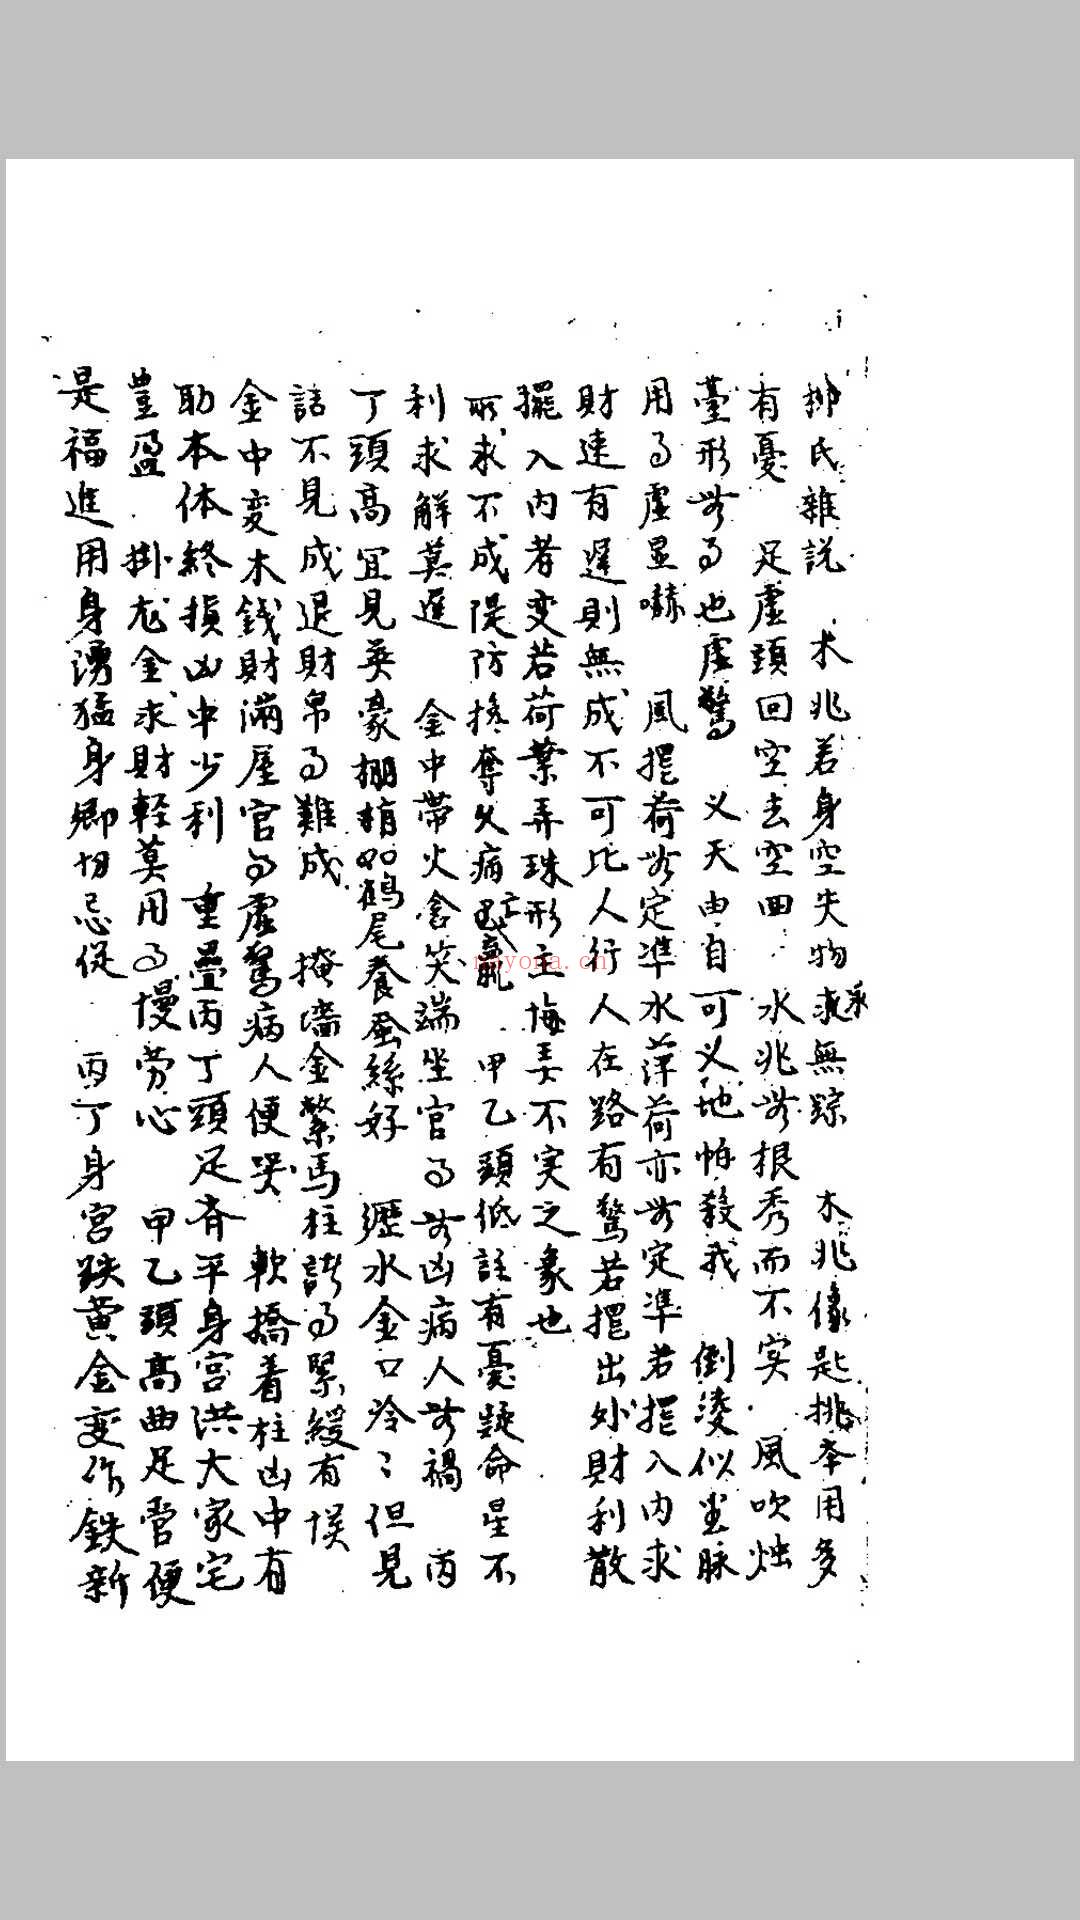 氏雜説 木兆若身空失物求無踪 木兆像匙挑本用多
有憂 足虛頭回空去空回 水兆㞢根秀而不实 風吹烛
臺形㞢也虛驚 义天由自可义地怕殺我 倒淩似坐脉
用虛显嚇 風擺荷定準水萍荷亦定準若擺入内求
財速有遲則無成不可比人行人在路有驚若擺出外財利散
擺入内者变若荷葉弄珠形主悔弄不实之象也
所求不成隄防搶奪久病 甲乙頭低註有憂疑命星不
利求解莫遲 金中帶火含笑端坐官凶病人禍 丙
丁頭高宜見英豪棚梢如鶴尾養蚕絲好 瀝水金口冷冷但見
話不見成退財帛难成 掩墻金繫馬柱謀緊緩有悮
金中变木錢財滿屋官虛驚病人便哭 軟撟着柱凶中有
助本体終損凶中少利 重疊丙丁頭足齐平身宫洪大家宅
豊盈 掛尨金求財輕莫用慢劳心 甲乙頭高曲足當便
是福進用身湧猛身鄉切忌促 丙丁身宫跌黄金变作鉄新
nayona.cn